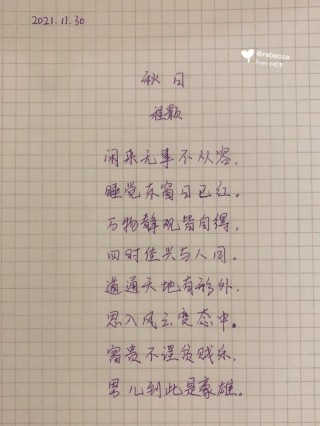 2021.11.30
@rebecca
秋日
程颢
闲来无事不从容，
睡觉东窗日已红。
万物静观皆自得，
四时佳兴与人同。
道通天地有形外，
思入风云变态中。
富贵不淫贫贱乐，
男儿到此是豪雄。